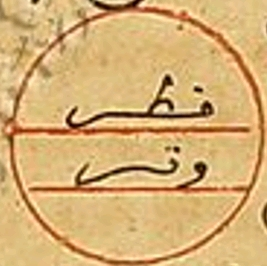 قطر
وتر